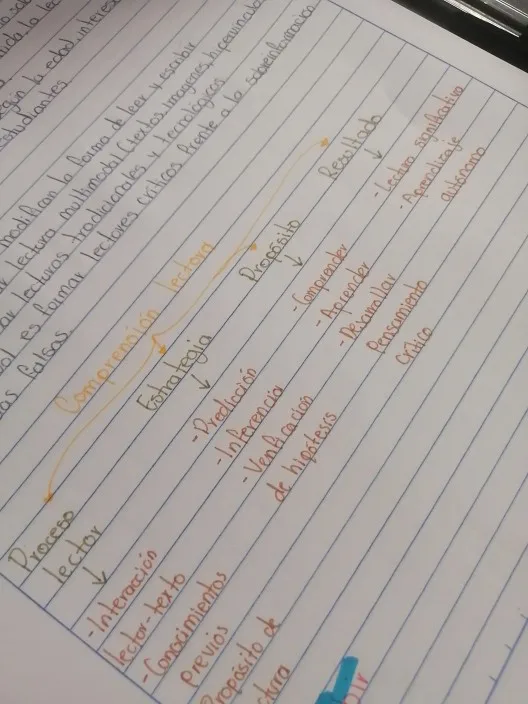 según la edad, interes
estudiantes.
modifican la forma de leer y escribir
lectura multimodal (textos, imágenes,
lecturas tradicionales y tecnológicos
es formar lectores críticos frente a la sobreinformación
falsas.
Comprensión lectora
Proceso
lector
- Interacción
lector-texto
- Conocimientos
previos
Propósito de
Estrategia
- Predicción
- Inferencia
- Verificación
de hipótesis
Propósito
- Comprender
- Aprender
- Desarrollar
Pensamiento
Crítico
Resultado
- Lectura significativa
- Aprendizaje
autónomo